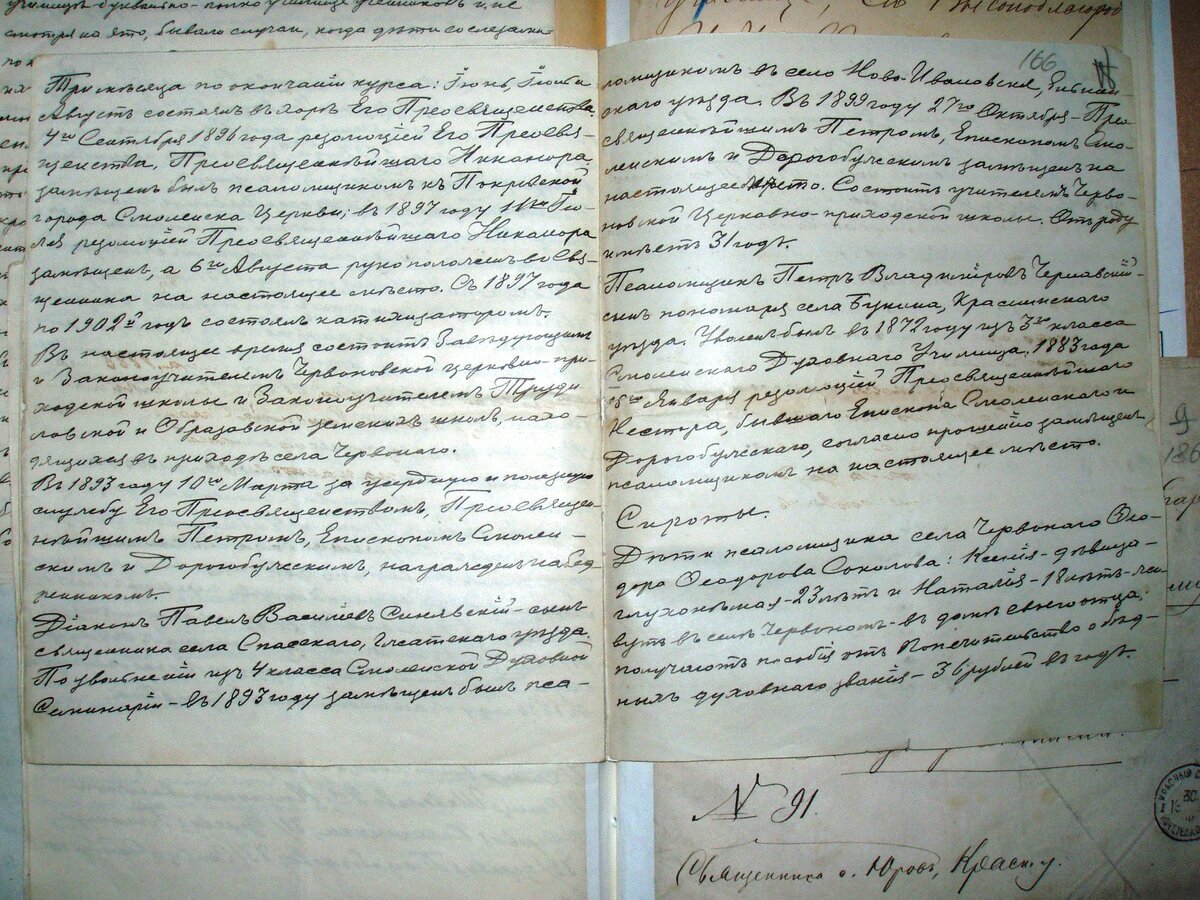 училищъ
смотря на это, бывали случаи, когда дѣти со слезами
Три мѣсяца по окончаніи курса: Іюнь, Іюль и
Августъ состоялъ въ хорѣ Его Преосвященства.
4го Сентября 1896 года резолюціей Его Преосвя-
щенства, Преосвященнѣйшаго Никанора,
замѣщенъ былъ псаломщикомъ къ Покровской
города Смоленска Церкви; въ 1897 году 11го Ію-
ля резолюціей Преосвященнѣйшаго Никанора
замѣщенъ, а 6го Августа рукоположенъ во Свя-
щенника на настоящее мѣсто. Съ 1897 года
по 1902й годъ состоялъ катихизаторомъ.
Въ настоящее время состоитъ Завѣдующимъ
и Законоучителемъ Червоновской церковно-при-
ходской школы и Законоучителемъ Труди
ловской и Образовской земскихъ школъ, нахо-
дящихся въ приходѣ села Червоного.
Въ 1893 году 10го Марта за усердную и полезную
службу Его Преосвященствомъ, Преосвящен-
нѣйшимъ Петромъ, Епископомъ Смолен-
скимъ и Дорогобужскимъ, награжденъ набед
ренникомъ.
Діаконъ Павелъ Васильевъ Синявскій - сынъ
священника села Спасскаго, Гжатскаго уѣзда.
По увольненіи изъ 4 класса Смоленской Духовной
Семинаріи - въ 1893 году замѣщенъ былъ пса-
166
ломщикомъ въ село Ново-Ивановское, Ельнин-
скаго уѣзда. Въ 1899 году 27го Октября - Прео
священнѣйшимъ Петромъ, Епископомъ Смо-
ленскимъ и Дорогобужскимъ замѣщенъ на
настоящее мѣсто. Состоитъ учителемъ Черво-
новской Церковно-приходской школы. Отъ роду
имѣетъ 31 годъ.
Псаломщикъ Петръ Владиміровъ Чернавскій-
сынъ пономаря села Букина, Краснинскаго
уѣзда. Уволенъ былъ въ 1872 году изъ 3го класса
Смоленскаго Духовнаго Училища. 1883 года
Января резолюціей Преосвященнѣйшаго
Нестора, бывшаго Епископа Смоленскаго и
Дорогобужскаго, согласно прошенію замѣщенъ
псаломщикомъ на настоящее мѣсто.
Сироты.
Дѣти псаломщика села Червонаго Ѳео-
дора Ѳеодорова Соколова: Ксенія - дѣвица-
глухонѣмая - 23 лѣтъ и Наталія - 18 лѣтъ - жи-
вутъ въ селѣ Червономъ - въ домѣ своего отца;
получаютъ пособія отъ Попечительства о бѣд-
ныхъ духовнаго званія - 36 рублей въ годъ.
9
186
№ 91.
Священника о. Юровъ, Красн. у.